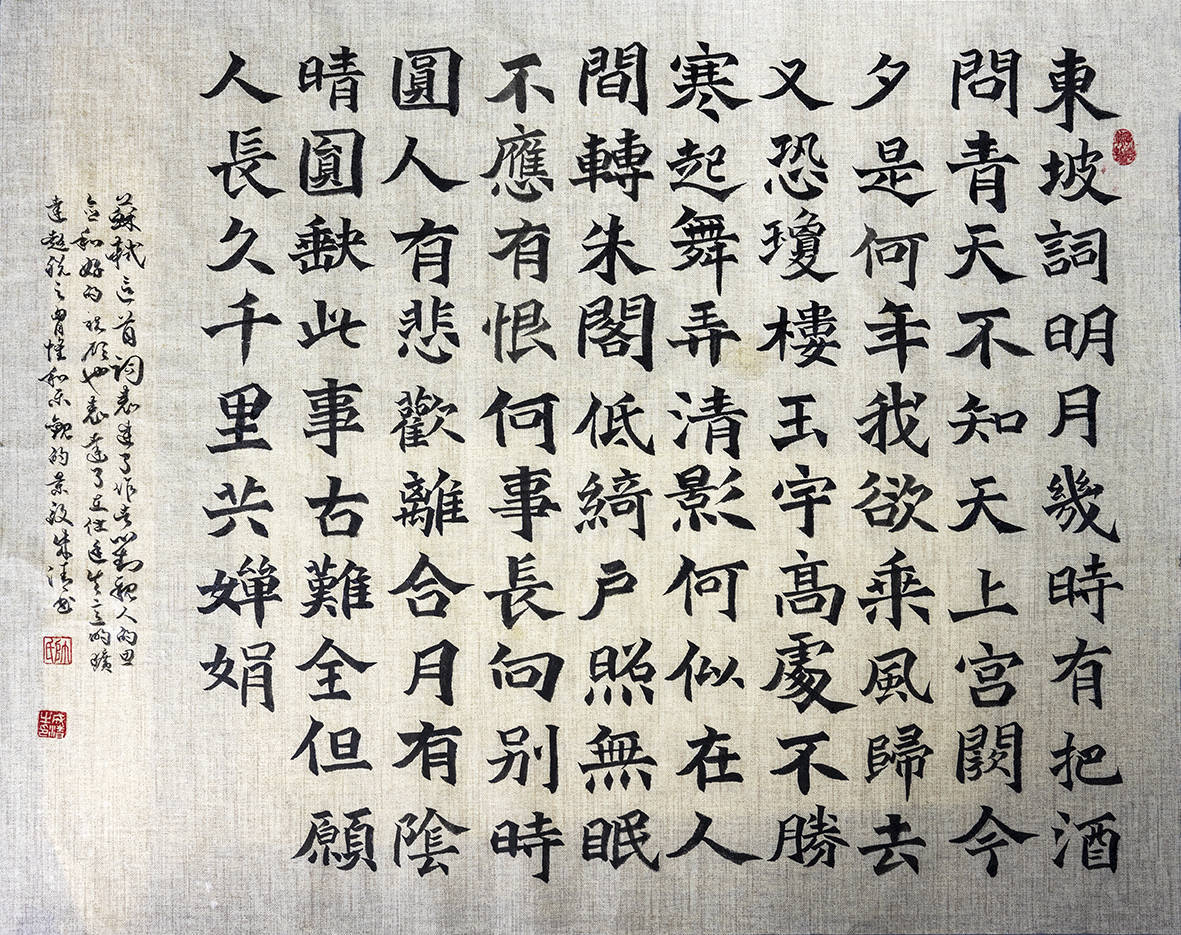 東坡詞明月幾時有把酒
問青天不知天上宮闕今
夕是何年我欲乘風歸去
又恐瓊樓玉宇高處不勝
寒起舞弄清影何似在人
間轉朱閣低綺戶照無眠
不應有恨何事長向别時
圓人有悲歡離合月有陰
晴圓缺此事古難全但願
人長久千里共嬋娟
蘇軾这首词表达了作者对親人的思
念和好的祝愿也表達了在仕途失意的曠
達超脱之胸懷和乐觀的景致朱清书